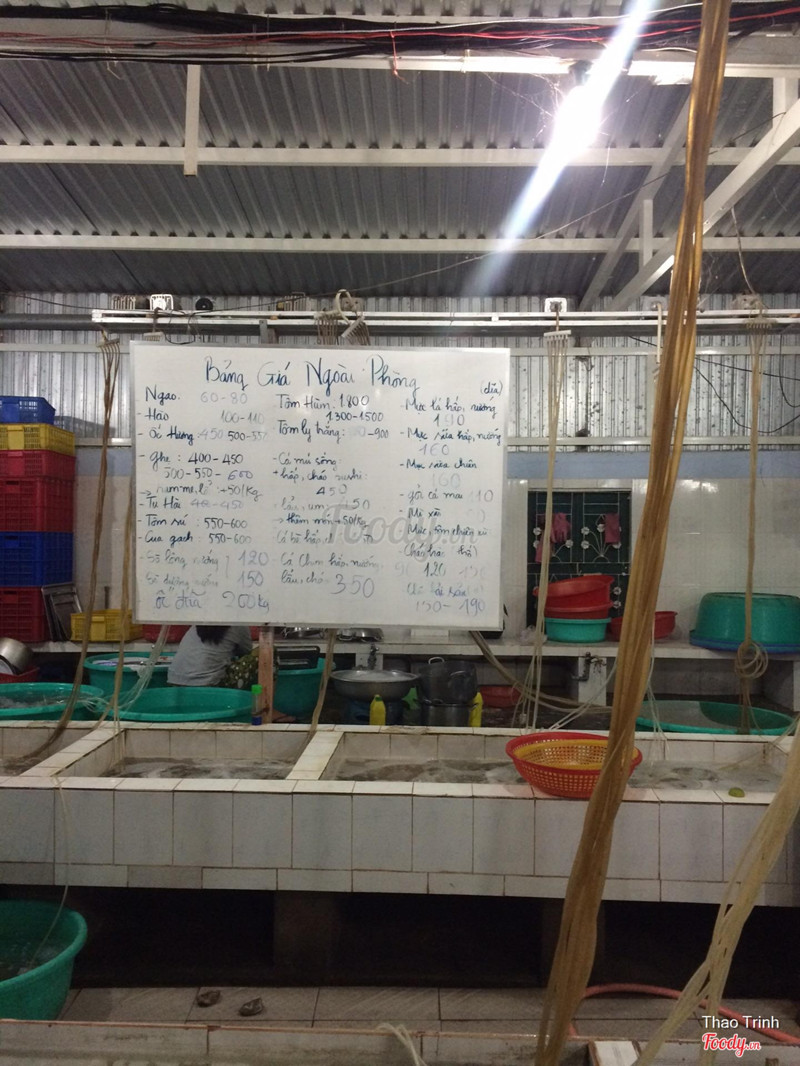 Bảng Giá Ngoài Phòng
(dĩa)
Ngao. 60-80
- Hào 100-110
- ốc Hương: 450 500-550
- ghẹ: 400-450
500-550-600
→ rim me, lẩu +50/kg
- Tu Hài 400-450
- Tôm sú: 550-600
- Cua gạch: 550-600
- Sò lông nướng 120
Sò dương nướng 150
ốc đĩa 260kg
Tôm Hùm: 1.800
1300-1500
Tôm ty trắng: -900
- Cá mú sống
+ hấp, cháo sushi:
450
lẩu, um 50
→ thêm món +50/kg
Cá bò hấp,
Cá Chim hấp, nướng
lẩu, cháo 350
- Mực lá hấp, nướng
190
- Mực sữa hấp, nướng
160
- Mực sữa chiên
160
- gỏi cá mai 110
- Mì xào
- Mực, tôm chiên xù
Cháy hào
120
150-190
Foody.vn
Thao Trinh
Foody.vn